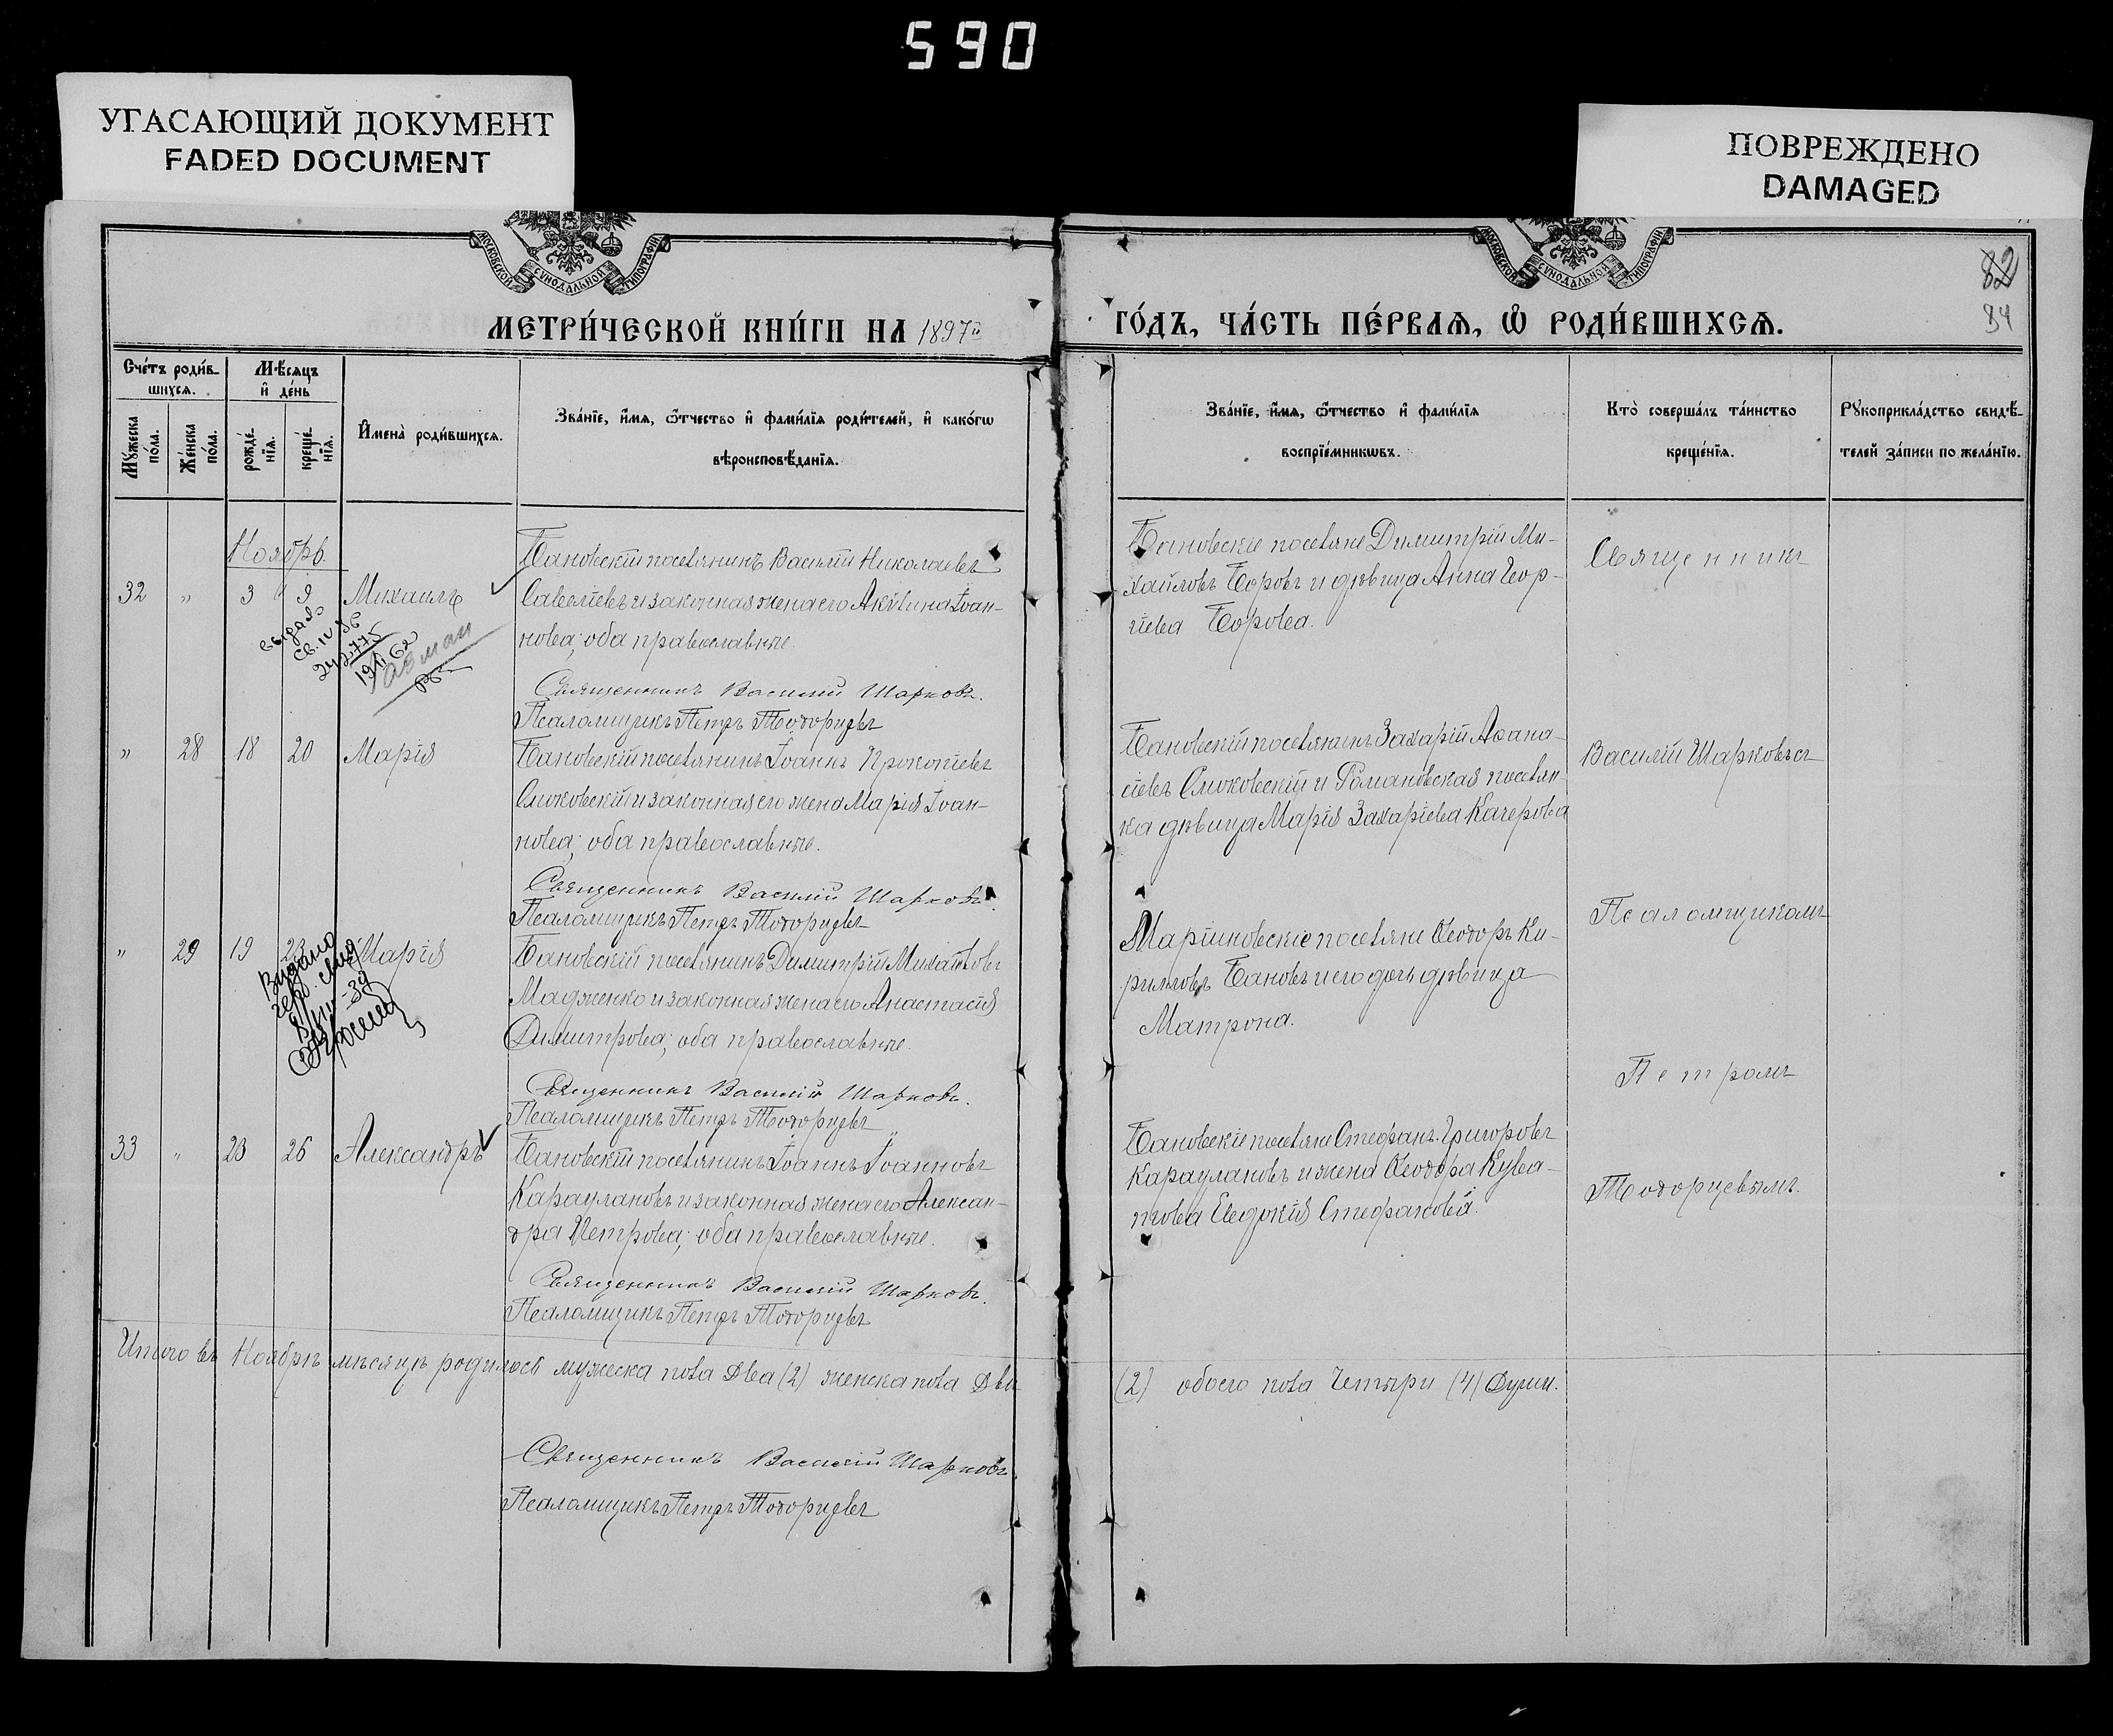 590
УГАСАЮЩИЙ ДОКУМЕНТ
FADED DOCUMENT
ПОВРЕЖДЕНО
DAMAGED
МОСКОВСКОЙ СѴНОДАЛЬНОЙ ТИПОГРАФІИ
МОСКОВСКОЙ СѴНОДАЛЬНОЙ ТИПОГРАФІИ
82
84
МЕТРИ́ЧЕСКОЙ КНИ́ГИ НА 1897й
ГО́ДЪ, ЧА́СТЬ ПЕ́РВАѦ, Ѽ РОДИ́ВШИХСѦ.
Сче́тъ роди́в-
шихсѧ.
Мѣ́сѧцъ
и҆ де́нь
Мꙋ́жеска
по́ла.
Же́нска
по́ла.
рожде́-
нїѧ.
креще́-
нїѧ.
И҆мена̀ роди́вшихсѧ.
Зва́нїе, и҆́мѧ, ѻ҆́тчество и҆ фами́лїѧ роди́телей, и҆ како́гѡ
вѣроисповѣ́данїѧ.
Зва́нїе, и҆́мѧ, ѻ҆́тчество и҆ фами́лїѧ
воспрїе́мникѡвъ.
Кто̀ соверша́лъ та́инство
креще́нїѧ.
Рꙋкоприкла́дство свидѣ́-
телей за́писи по жела́нїю.
Ноябрь.
32 " 3 9 Михаилъ
Бановскій поселянинъ Василій Николаевъ
Савеліевъ и законная жена его Акилина Іоан-
нова; оба православные.
Священникъ Василій Шарковъ.
Псаломщикъ Петръ Тодорцевъ
Бановскіе поселяне Димитрій Ми-
хайловъ Боровъ и дѣвица Анна Геор-
гіева Борова.
Священник
выдано
" 28 18 20 Марія
Бановскій поселянинъ Іоаннъ Прокопіевъ
Слюковскій и законная его жена Марія Іоан-
нова; оба православные.
Священникъ Василій Шарковъ.
Псаломщикъ Петръ Тодорцевъ
Бановскій поселянинъ Захарій Аѳана-
сіевъ Слюковскій и Романовская поселян-
ка дѣвица Марія Захаріева Качерова
Василій Шарковъ съ
Псаломщикомъ
" 29 19 23 Марія
Бановскій поселянинъ Димитрій Михайловъ
Мадженко и законная жена его Анастасія
Димитрова; оба православные.
Священникъ Василій Шарковъ.
Псаломщикъ Петръ Тодорцевъ
Маріиновскіе поселяне Ѳеодоръ Ки-
рилловъ Бановъ и его дочь дѣвица
Матрона.
Петромъ
Видано
33 " 23 26 Александръ
Бановскій поселянинъ Іоаннъ Іоанновъ
Караулановъ и законная жена его Алексан-
дра Петрова; оба православные.
Священникъ Василій Шарковъ.
Псаломщикъ Петръ Тодорцевъ
Бановскіе поселяне Стефанъ Григоровъ
Караулановъ и жена Ѳеодора Кува-
нова Евдокія Стефанова.
Тодорцевымъ.
Итого въ Ноябрѣ мѣсяцѣ родилось мужеска пола Два (2) женска пола Двѣ
(2) обоего пола Четыри (4) Души.
Священникъ Василій Шарковъ.
Псаломщикъ Петръ Тодорцевъ